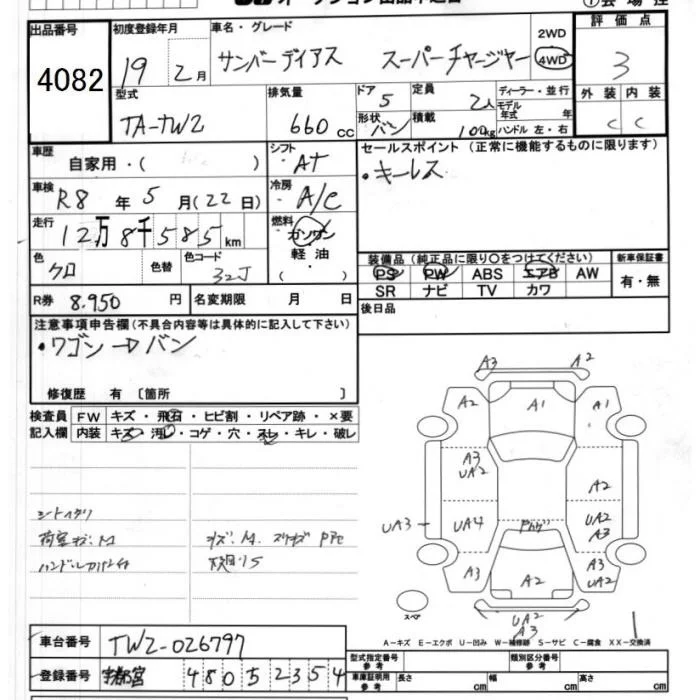 出品番号
4082
初度登録年月
19 2月
車名・グレード
サンバーディアス スーパーチャージャー
2WD
4WD
評価点
3
型式
TA-TW2
排気量
660 cc
ドア
5
形状
バン
定員
2人
積載
100kg
ディーラー・並行
モデル
年式 年
ハンドル 左・右
外装 内装
C C
車歴
自家用・( )
シフト
AT
セールスポイント(正常に機能するものに限ります)
・キーレス
車検
R8 年 5 月(22日)
冷房
A/C
走行
12万8千585km
燃料
ガソリン
軽油
・( )
色
クロ
色替
色コード
32J
装備品(純正品に限り〇をつけてください)
新車保証書
PS PW ABS エアB AW
SR ナビ TV カワ
有・無
R券 8.950 円
名変期限 月 日
後日品
注意事項申告欄(不具合内容等は具体的に記入して下さい)
・ワゴン→バン
修復歴 有 〔箇所 〕
検査員
記入欄
FW キズ・飛石・ヒビ割・リペア跡・×要
内装 キズ・汚レ・コゲ・穴・スレ・キレ・破レ
シートヘタリ
荷室キズ:M
A3 A2
A2 A1 A1
A3
UA2
A2
UA3 UA4
UA2
A3
A3 A2
A3
UA2
UA2
A3
スペア
A-キズ E-エクボ U-凹み W-補修跡 S-サビ C-腐食 XX-交換済
車台番号
TW2-026797
登録番号
宇都宮 480 52354
型式指定番号
参考
類別区分番号
参考
車庫証明用
参考
長さ cm
幅 cm
高さ cm